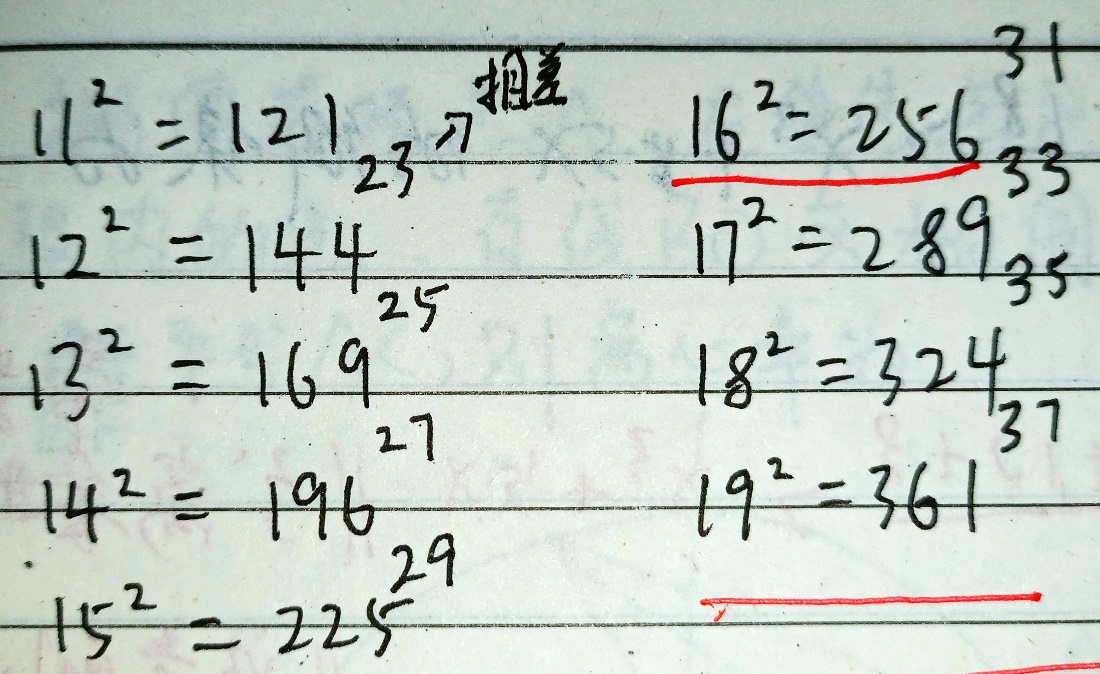 11² = 121
23 ↗ 相差
12² = 144
25
13² = 169
27
14² = 196
29
15² = 225
31
16² = 256
33
17² = 289
35
18² = 324
37
19² = 361